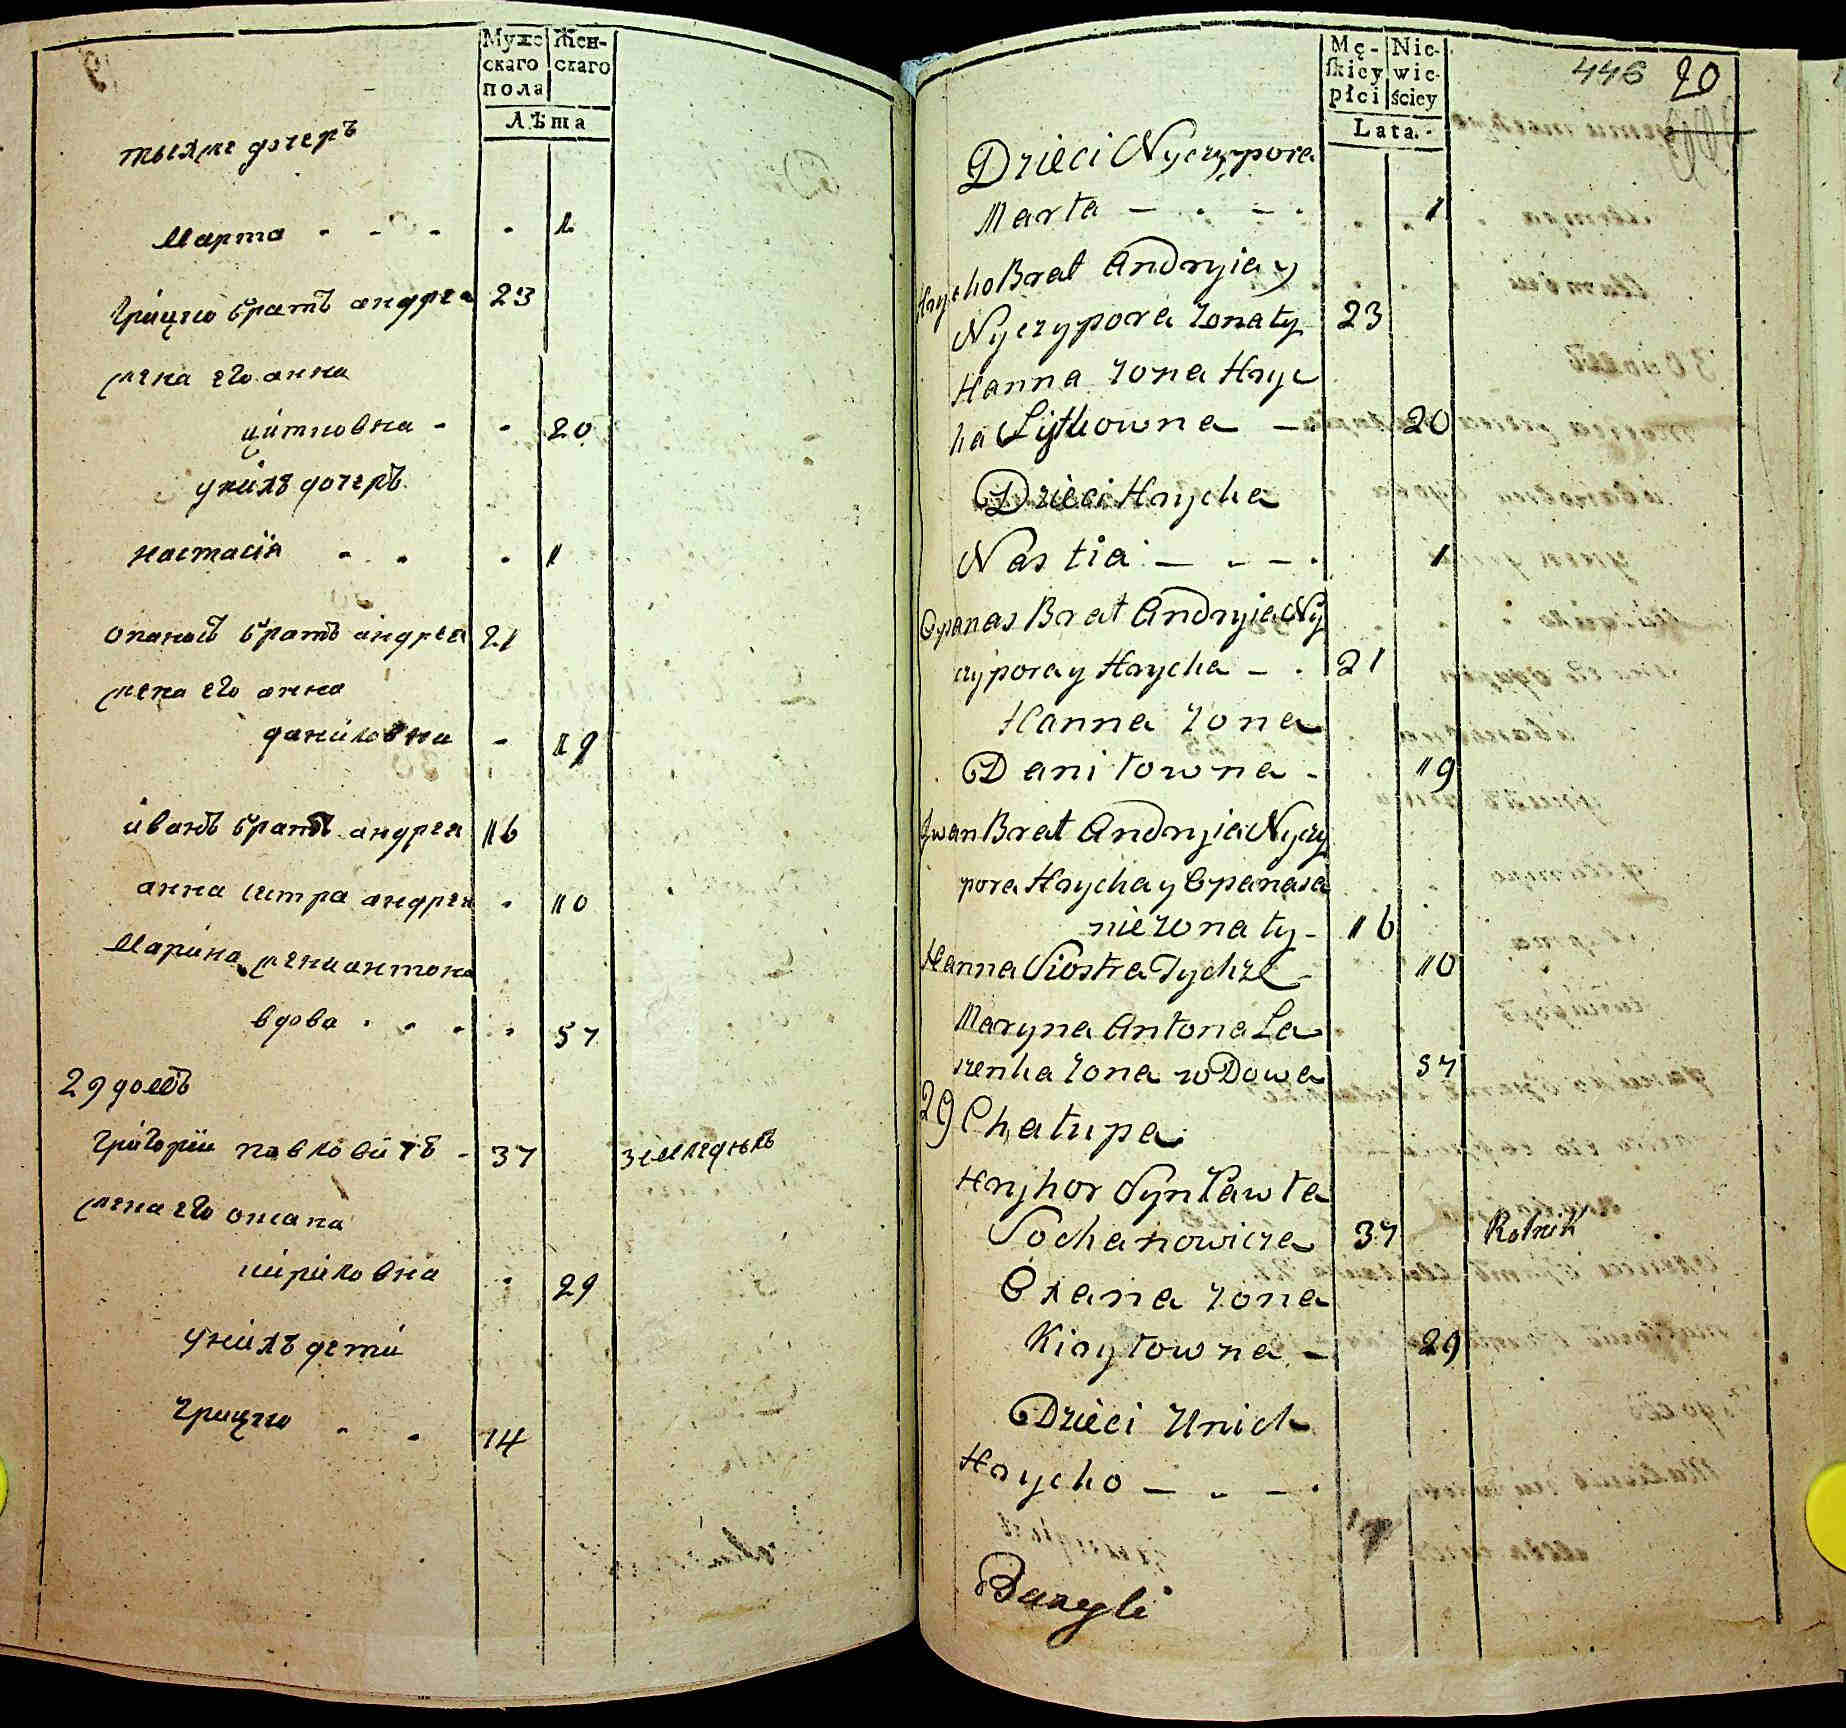 Муже
скаго
пола
Жен-
скаго
Лѣта
тыхже дочеръ
Марта - - - - 1
Грицко братъ андрея 23
жена его анна
цитковна - - 20
уних дочеръ
настасія - - - 1
опанасъ братъ андрея 21
жена его анна
даниловна - 19
иванъ братъ андрея 16
анна сестра андрея - 10
Марина жена антона
вдова - - - - 57
29 домъ
григории павловичъ - 37 земледелъ
жена его оксана
кириловна - 29
унихъ дети
грицко - - 14
Mę-
skiey
płci
Nie-
wie-
ściey
Lata.
446 20
Dzieci Nyczypora
Marta - . - . 1
Hrycho Brat Andryia y
Nyczypora żonaty 23
Hanna żona Hryc
ha Sytkowna - 20
Dzieci Hrycha
Nastia - - - . 1
Opanas Brat Andryia Ny
czypora y Hrycha - . 21
Hanna żona
Daniłowna - 19
Jwan Brat Andryia Nyczy
pora Hrycha y Opanasa
nieżonaty - 16
Hanna Siostra Tychże - 10
Maryna Antona La
szenka żona wDowa 57
29 Chałupa
Hryhor Syn Pawła
Sochanowicza 37 Rolnik
Oxana żona
Kiryłowna - 29
Dzieci Unich
Hrycho - - - .
Bazyli